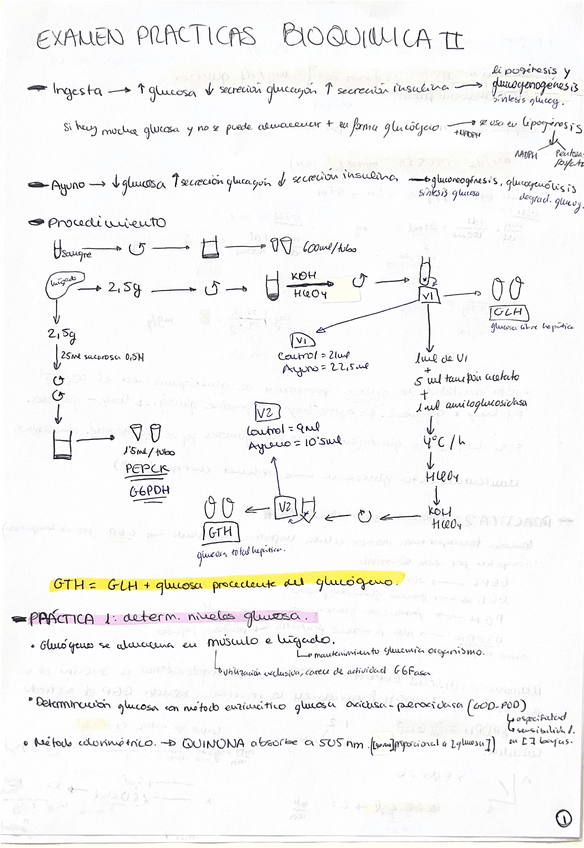 EXAMEN PRACTICAS BIOQUIMICA II
Ingesta → ↑ glucosa ↓ secreción glucagón ↑ secreción insulina → lipogénesis y
glucogenogénesis
síntesis glucog.
Si hay mucha glucosa y no se puede almacenar + en forma glucógeno → se usa en lipogénesis
+NADPH
NADPH
Pentosas
fosfato
Ayuno → ↓glucosa ↑secreción glucagón ↓ secreción insulina → gluconeogénesis, glucogenólisis
síntesis glucosa
degrad. glucog.
Procedimiento
sangre
600ml/tubo
hígado → 2,5g
KOH
HClO4
V1
GLH
glucosa libre hepática
2,5g
25ml sacarosa 0,5M
V1
Control = 21ml
Ayuno = 22,5ml
1ml de V1
+
5 ml tampón acetato
+
1ml amiloglucosidasa
4°C / h
HClO4
KOH
HClO4
V2
Control = 9ml
Ayuno = 10'5ml
1'5ml/tubo
PEPCK
G6PDH
V2
GTH
glucosa total hepática.
GTH = GLH + glucosa procedente del glucógeno
PRÁCTICA 1: determ. niveles glucosa.
• Glucógeno se almacena en músculo e hígado.
mantenimiento glucemia organismo.
utilización exclusiva, carece de actividad G6Fasa
• Determinación glucosa con método enzimático glucosa oxidasa-peroxidasa (GOD-POD)
especificidad
sensibilidad
en [ ] bajas.
• Método colorimétrico. → QUINONA absorbe a 505 nm. proporcional a [glucosa]
1